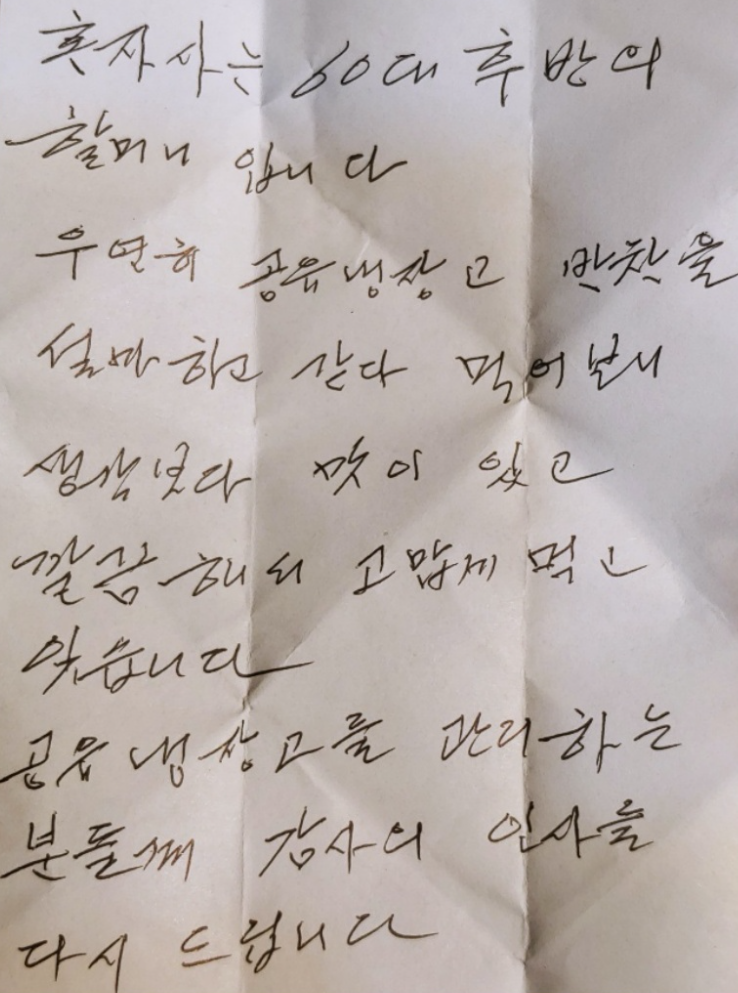 혼자사는 60대 후반의
할머니 입니다
우연히 공유냉장고 반찬을
설마하고 갖다 먹어보니
생각보다 맛이 있고
깔끔해서 고맙게 먹고
있습니다
공유냉장고를 관리하는
분들께 감사의 인사를
다시 드립니다